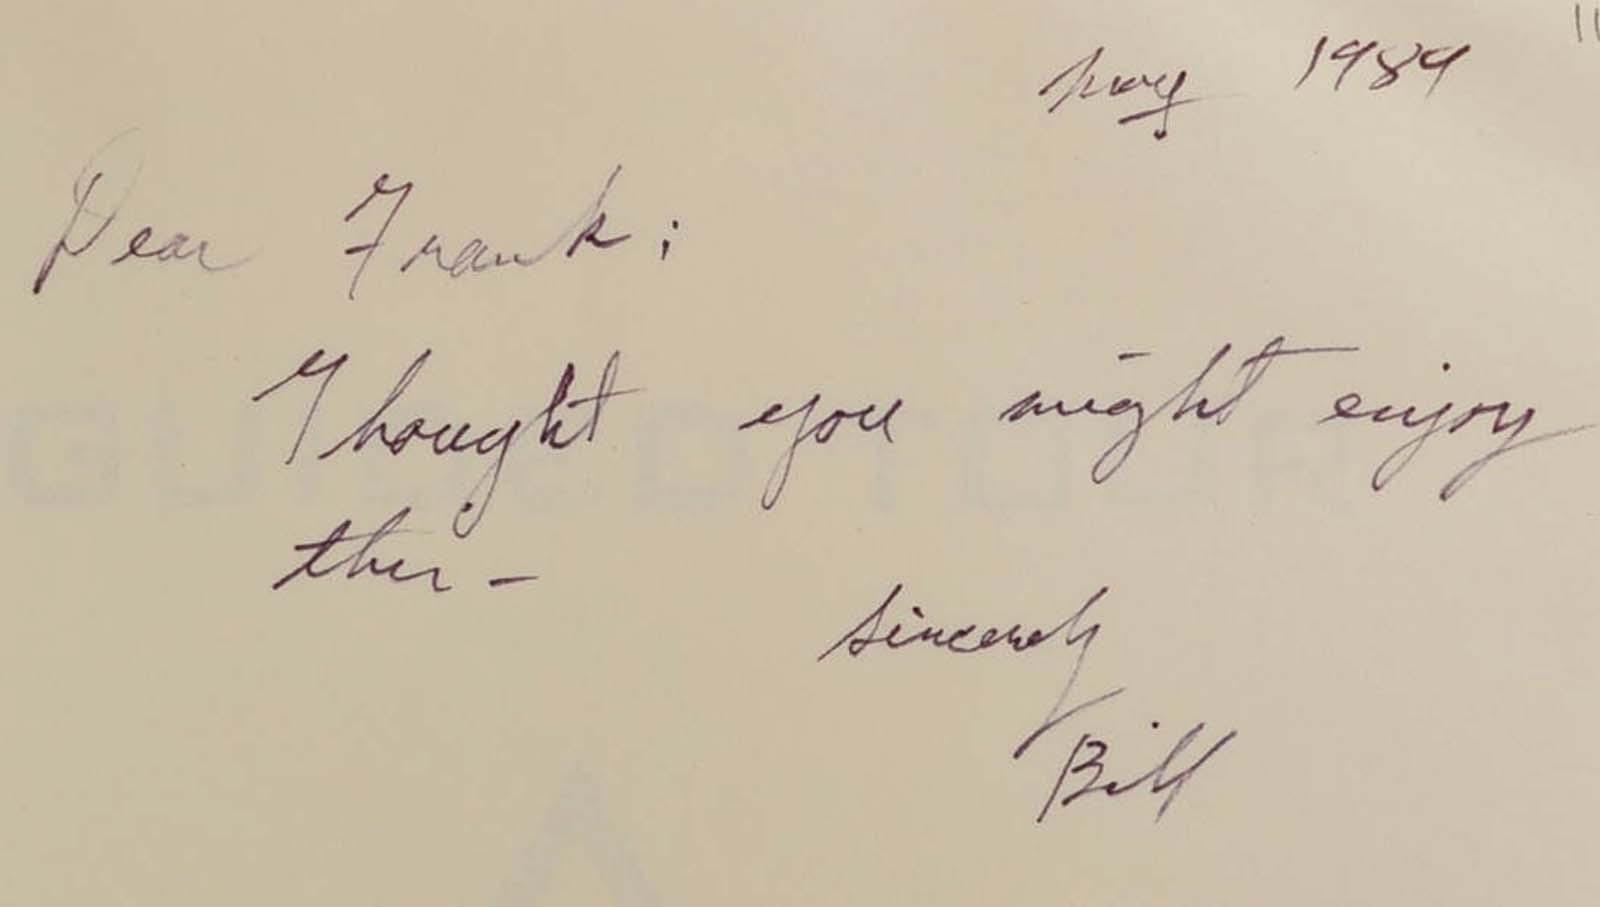 Nov 1989
Dear Frank:
Thought you might enjoy
this -
Sincerely
Bill